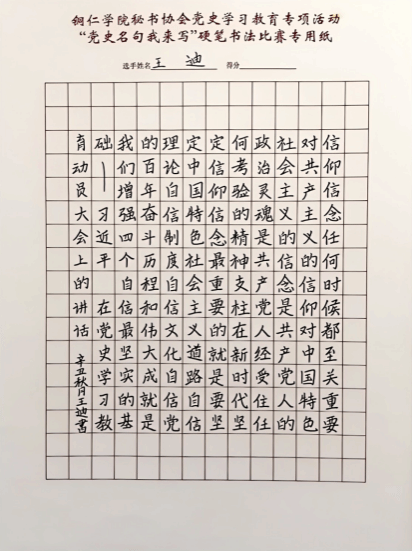 铜仁学院秘书协会党史学习教育专项活动
“党史名句我来写”硬笔书法比赛专用纸
选手姓名 王迪 得分
信仰信念任何时候都至关重要
对共产主义的信仰对中国特色
社会主义的信念是共产党人的
政治灵魂是共产党人经受住任
何考验的精神支柱在新时代坚
定信仰信念最重要的就是要坚
定中国特色社会主义道路自信
理论自信制度自信文化自信党
的百年奋斗历程和伟大成就是
我们增强四个自信最坚实的基
础——习近平 在党史学习教
育动员大会上的讲话
辛丑秋月王迪书